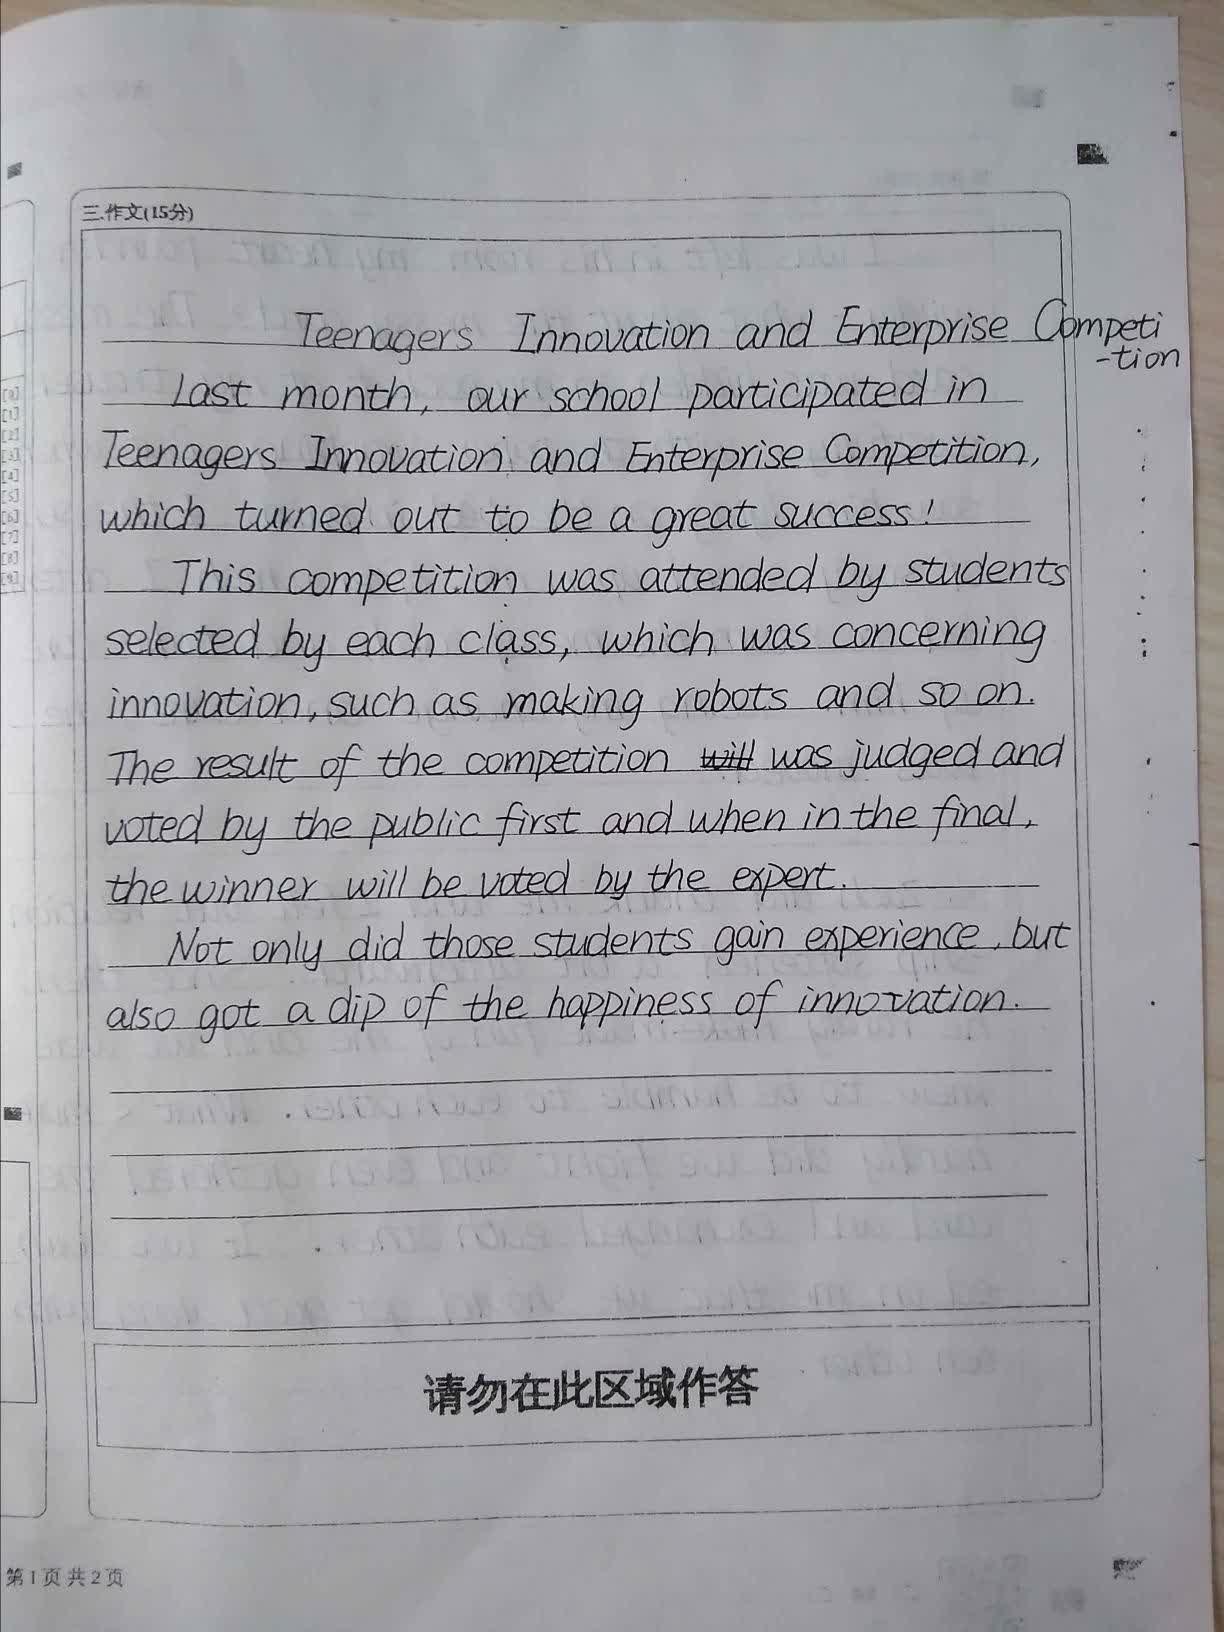 三.作文(15分)
Teenagers Innovation and Enterprise Competi
-tion
Last month, our school participated in
Teenagers Innovation and Enterprise Competition,
which turned out to be a great success!
This competition was attended by students
selected by each class, which was concerning
innovation, such as making robots and so on.
The result of the competition will was judged and
voted by the public first and when in the final,
the winner will be voted by the expert.
Not only did those students gain experience, but
also got a dip of the happiness of innovation.
请勿在此区域作答
第1页共2页
[0]
[1]
[2]
[3]
[4]
[5]
[6]
[7]
[8]
[9]